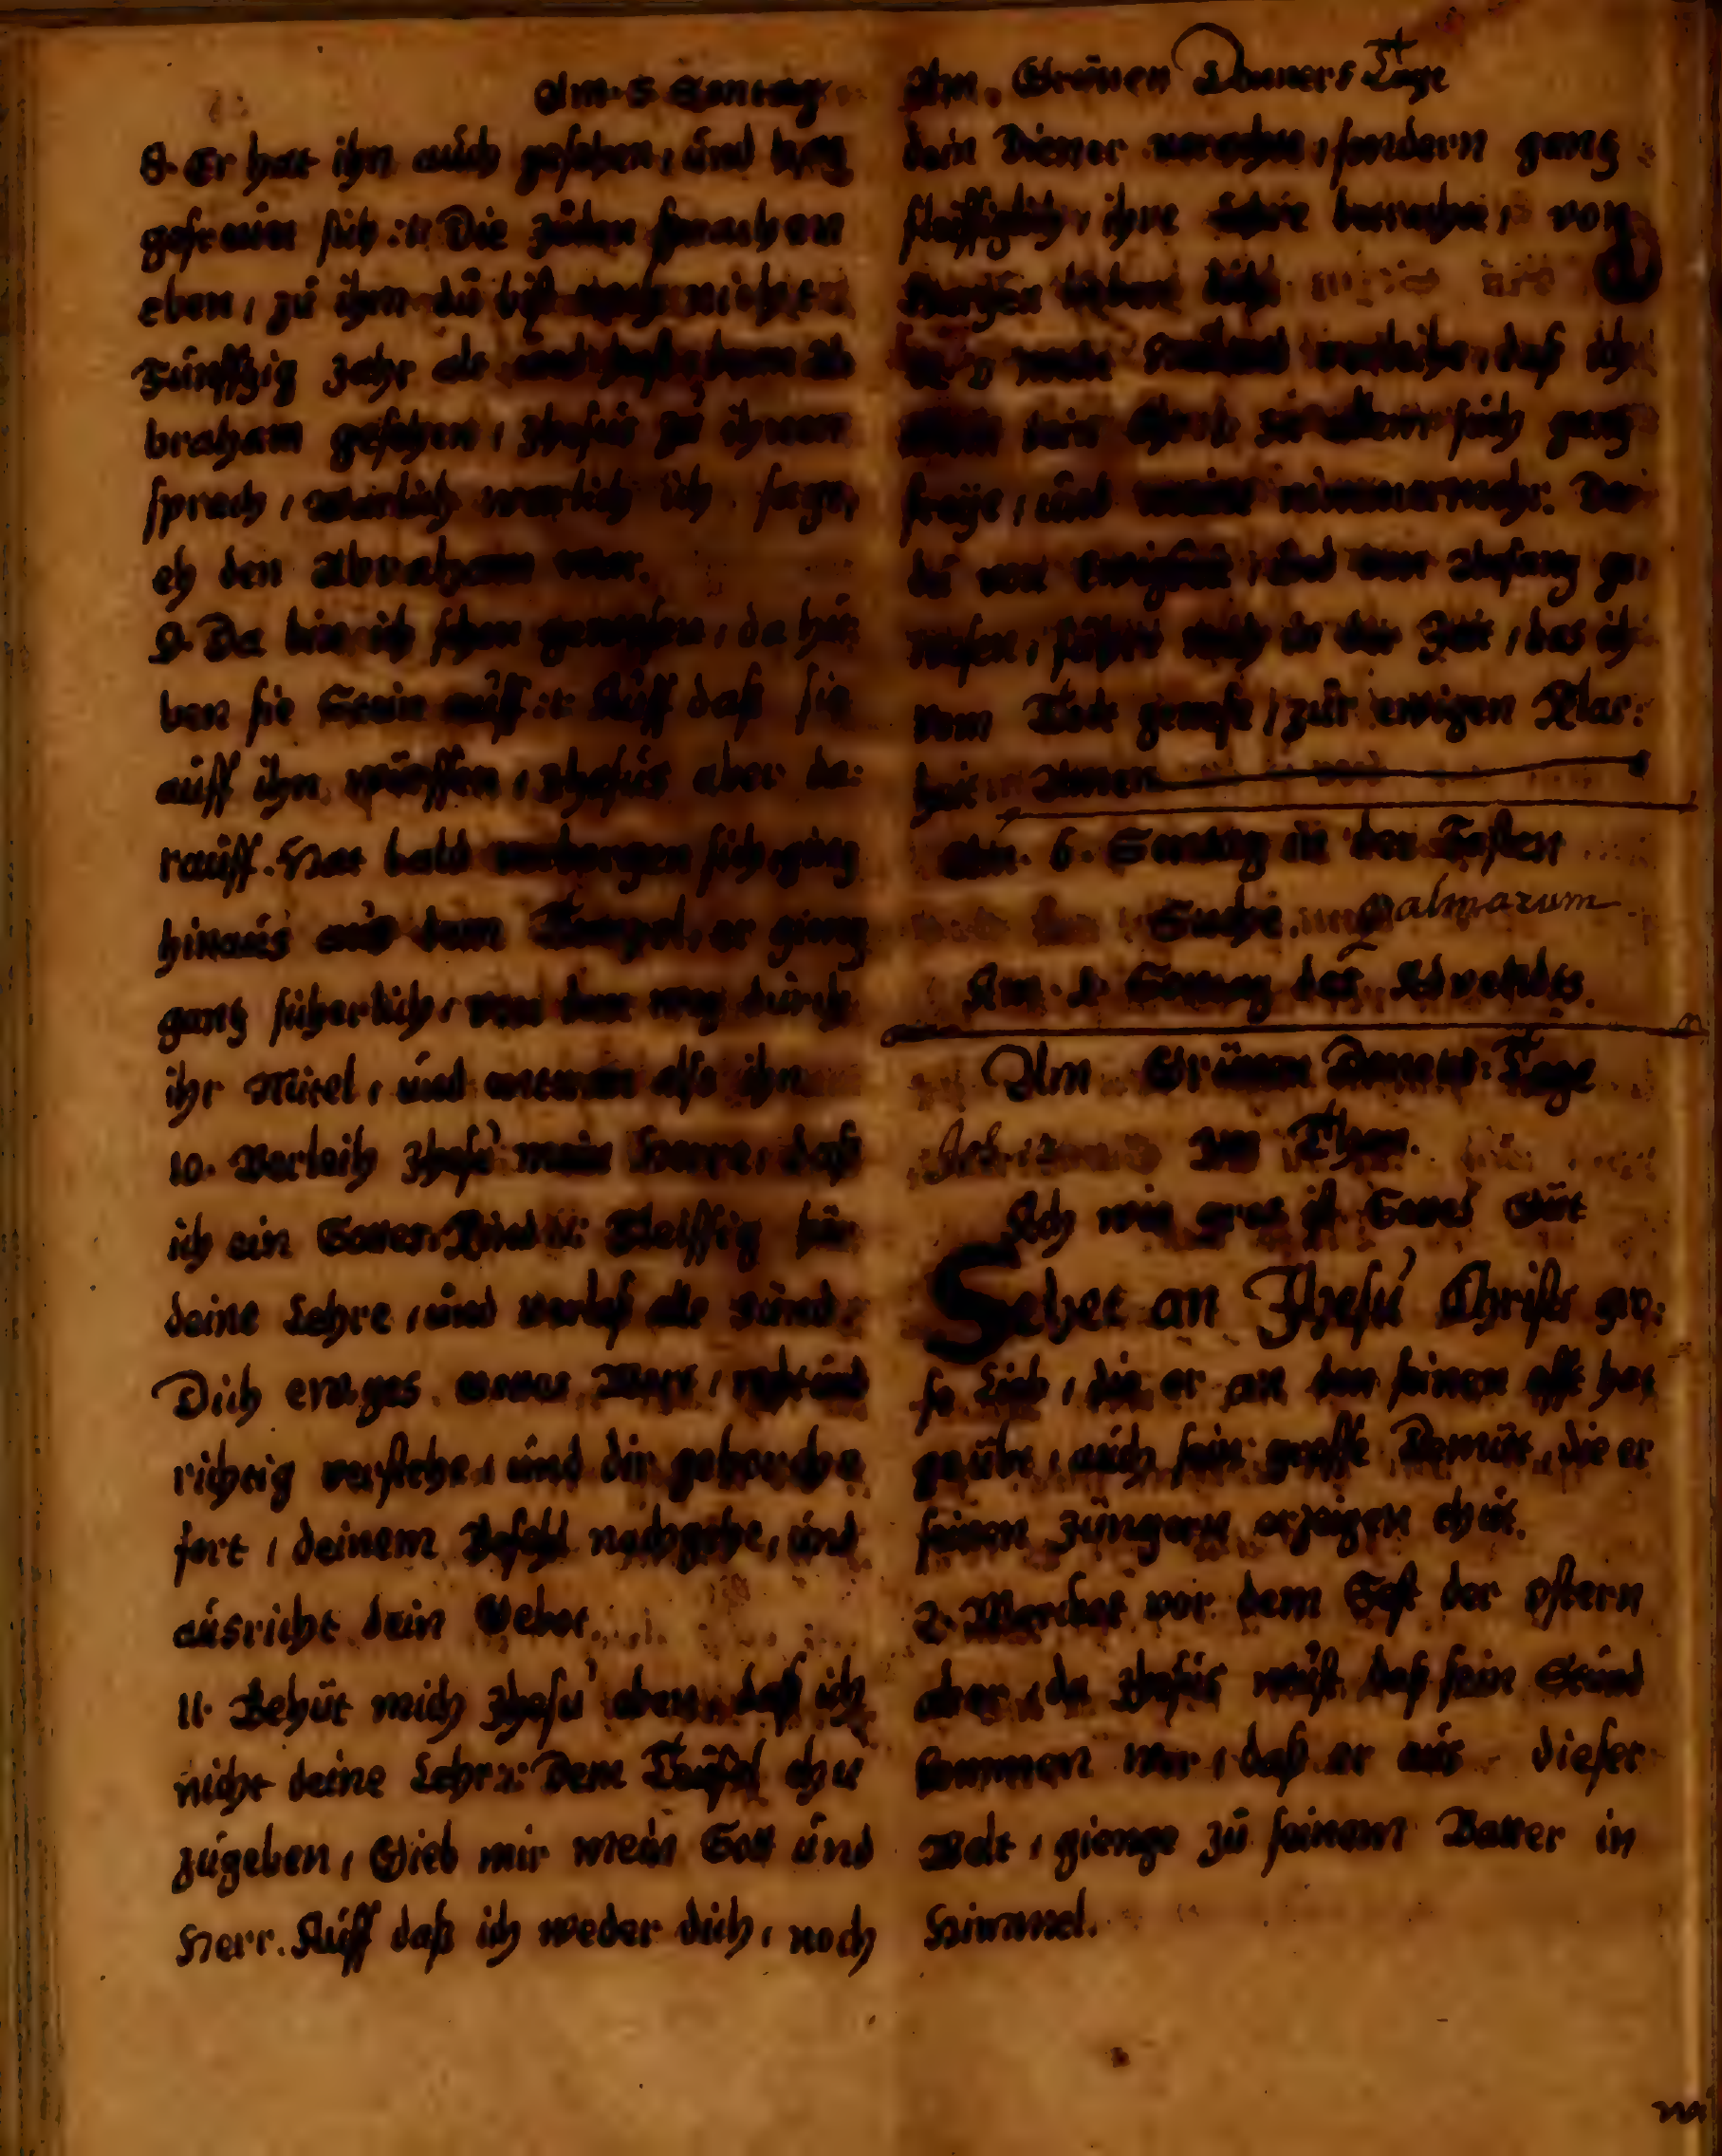 Am. 5 Sontag
8. Er hatt ihn auch gesehen, und
gefreuet sich :: Die Jüden sprachen
eben, zu ihm du bist noch nicht
Fünffzig Jahr alt und hast den A
braham gesehen, Jhesus zu ihnen
sprach, warlich warlich ich sage,
eh den Abraham war.
9. Da bin ich schon gewesen, da hu-
ben sie Stein auff :: Auff daß sie
auff ihn würffen, Jhesus aber da-
rauff. Hat bald verborgen sich, ging
hinaus aus dem Tempel, er gieng
gantz sicherlich, von dem weg durch
ihr Mittel, und entwan also ihn
10. Verleih Jhesu mein Herre, daß
ich ein Gottes Kind :: Fleissig hör
deine Lehre, und verlaß alle Sünd.
Dich ewiges Wort, recht und
richtig verstehe, und dir gehorche
fort, deinem Befehl nachgehe, und
ausricht dein Gebot.
11. Behüt mich Jhesu eben, daß ich
nicht deine Lehr :: Dem Teüfel thu
zugeben, Gieb mir mein Gott und
Herr. Auff daß ich weder dich, noch
Am. Grünen Donners Tage
dein Diener verachte, sondern gantz
fleissiglich, ihre Lehre betrachte, von
Hertzen liebe dich
mein verleihe, daß ich
dein zu allem sich gantz
freye, und nimmermehr. Der
du von Ewigkeit, und vom Anfang ge-
wesen, führe mich in der Zeit, das ich
vom Tode genese, zur ewigen Klar-
heit Amen
Am. 6. Sontag in der Fasten
Suche. Palmarum
Am. 1. Sontag des Advendts.
Am Grünen Donners Tage
Joh. 13 Im Thon.
Ach wie gros ist Gottes Güt
Sehet an Jhesu Christi gro-
se Lieb, die er an den seinen offt hat
geübt, auch sein grosse Demüt, die er
seinen Jüngern erzeigen thut.
2. Mercket vor dem Fest der Ostern
aber, da Jhesus wust daß sein Stund
kommen war, daß er aus dieser
Welt, gienge zu seinem Vatter in
Himmel.